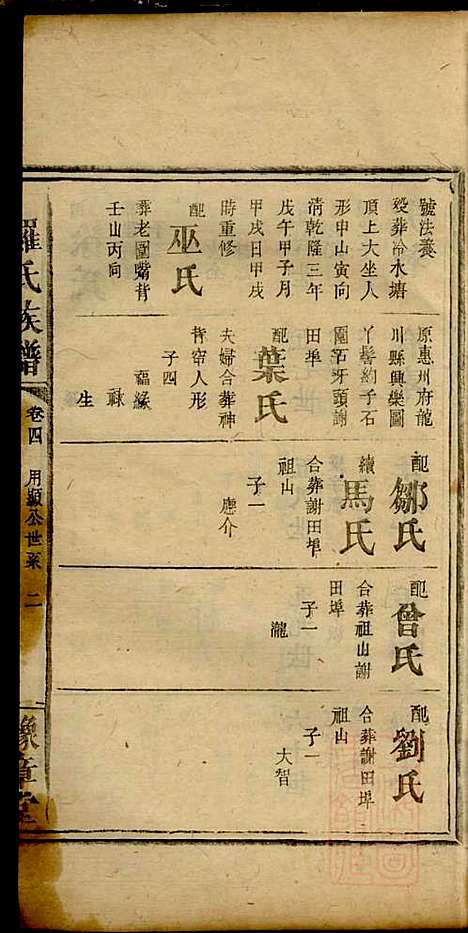 號法養
歿葬冷水塘
頂上大坐人
形申山寅向
清乾隆三年
戊午甲子月
甲戌日甲戌
時重修
配巫氏
葬老圍嘴背
壬山丙向
原惠州府龍
川縣興樂圖
丫髻約子石
圍石牙頭謝
田埠
配葉氏
夫婦合葬神
背帘人形
子四
福緣
祿
生
配鄒氏
續馬氏
合葬謝田埠
祖山
子一
應介
配曾氏
合葬祖山謝
田埠
子一
瀧
配劉氏
合葬謝田埠
祖山
子一
大智
羅氏族譜
卷四
用顯公世系
二
豫章堂